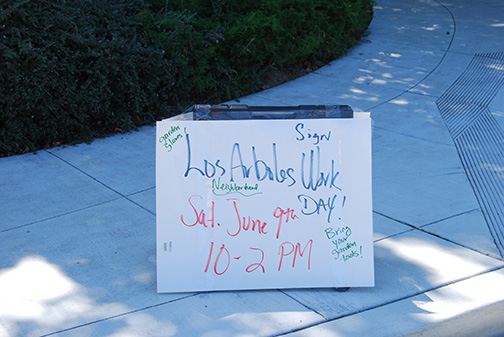 Sign
garden
Los Arboles Work
Neighborhood
DAY!
Sat. June 9th
10-2 PM
Bring
your
garden
tools!